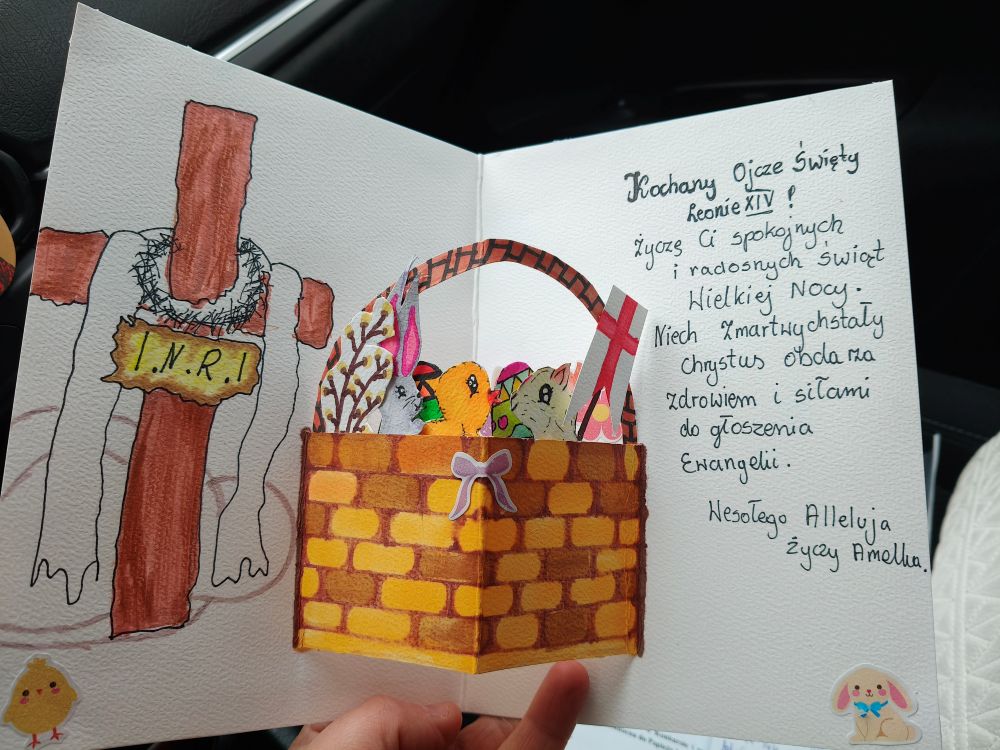 I.N.R.I
Kochany Ojcze Święty
Leonie XIV !
Życzę Ci spokojnych
i radosnych świąt
Wielkiej Nocy.
Niech Zmartwychstały
Chrystus obdarza
zdrowiem i siłami
do głoszenia
Ewangelii.
Wesołego Alleluja
życzy Amelka.